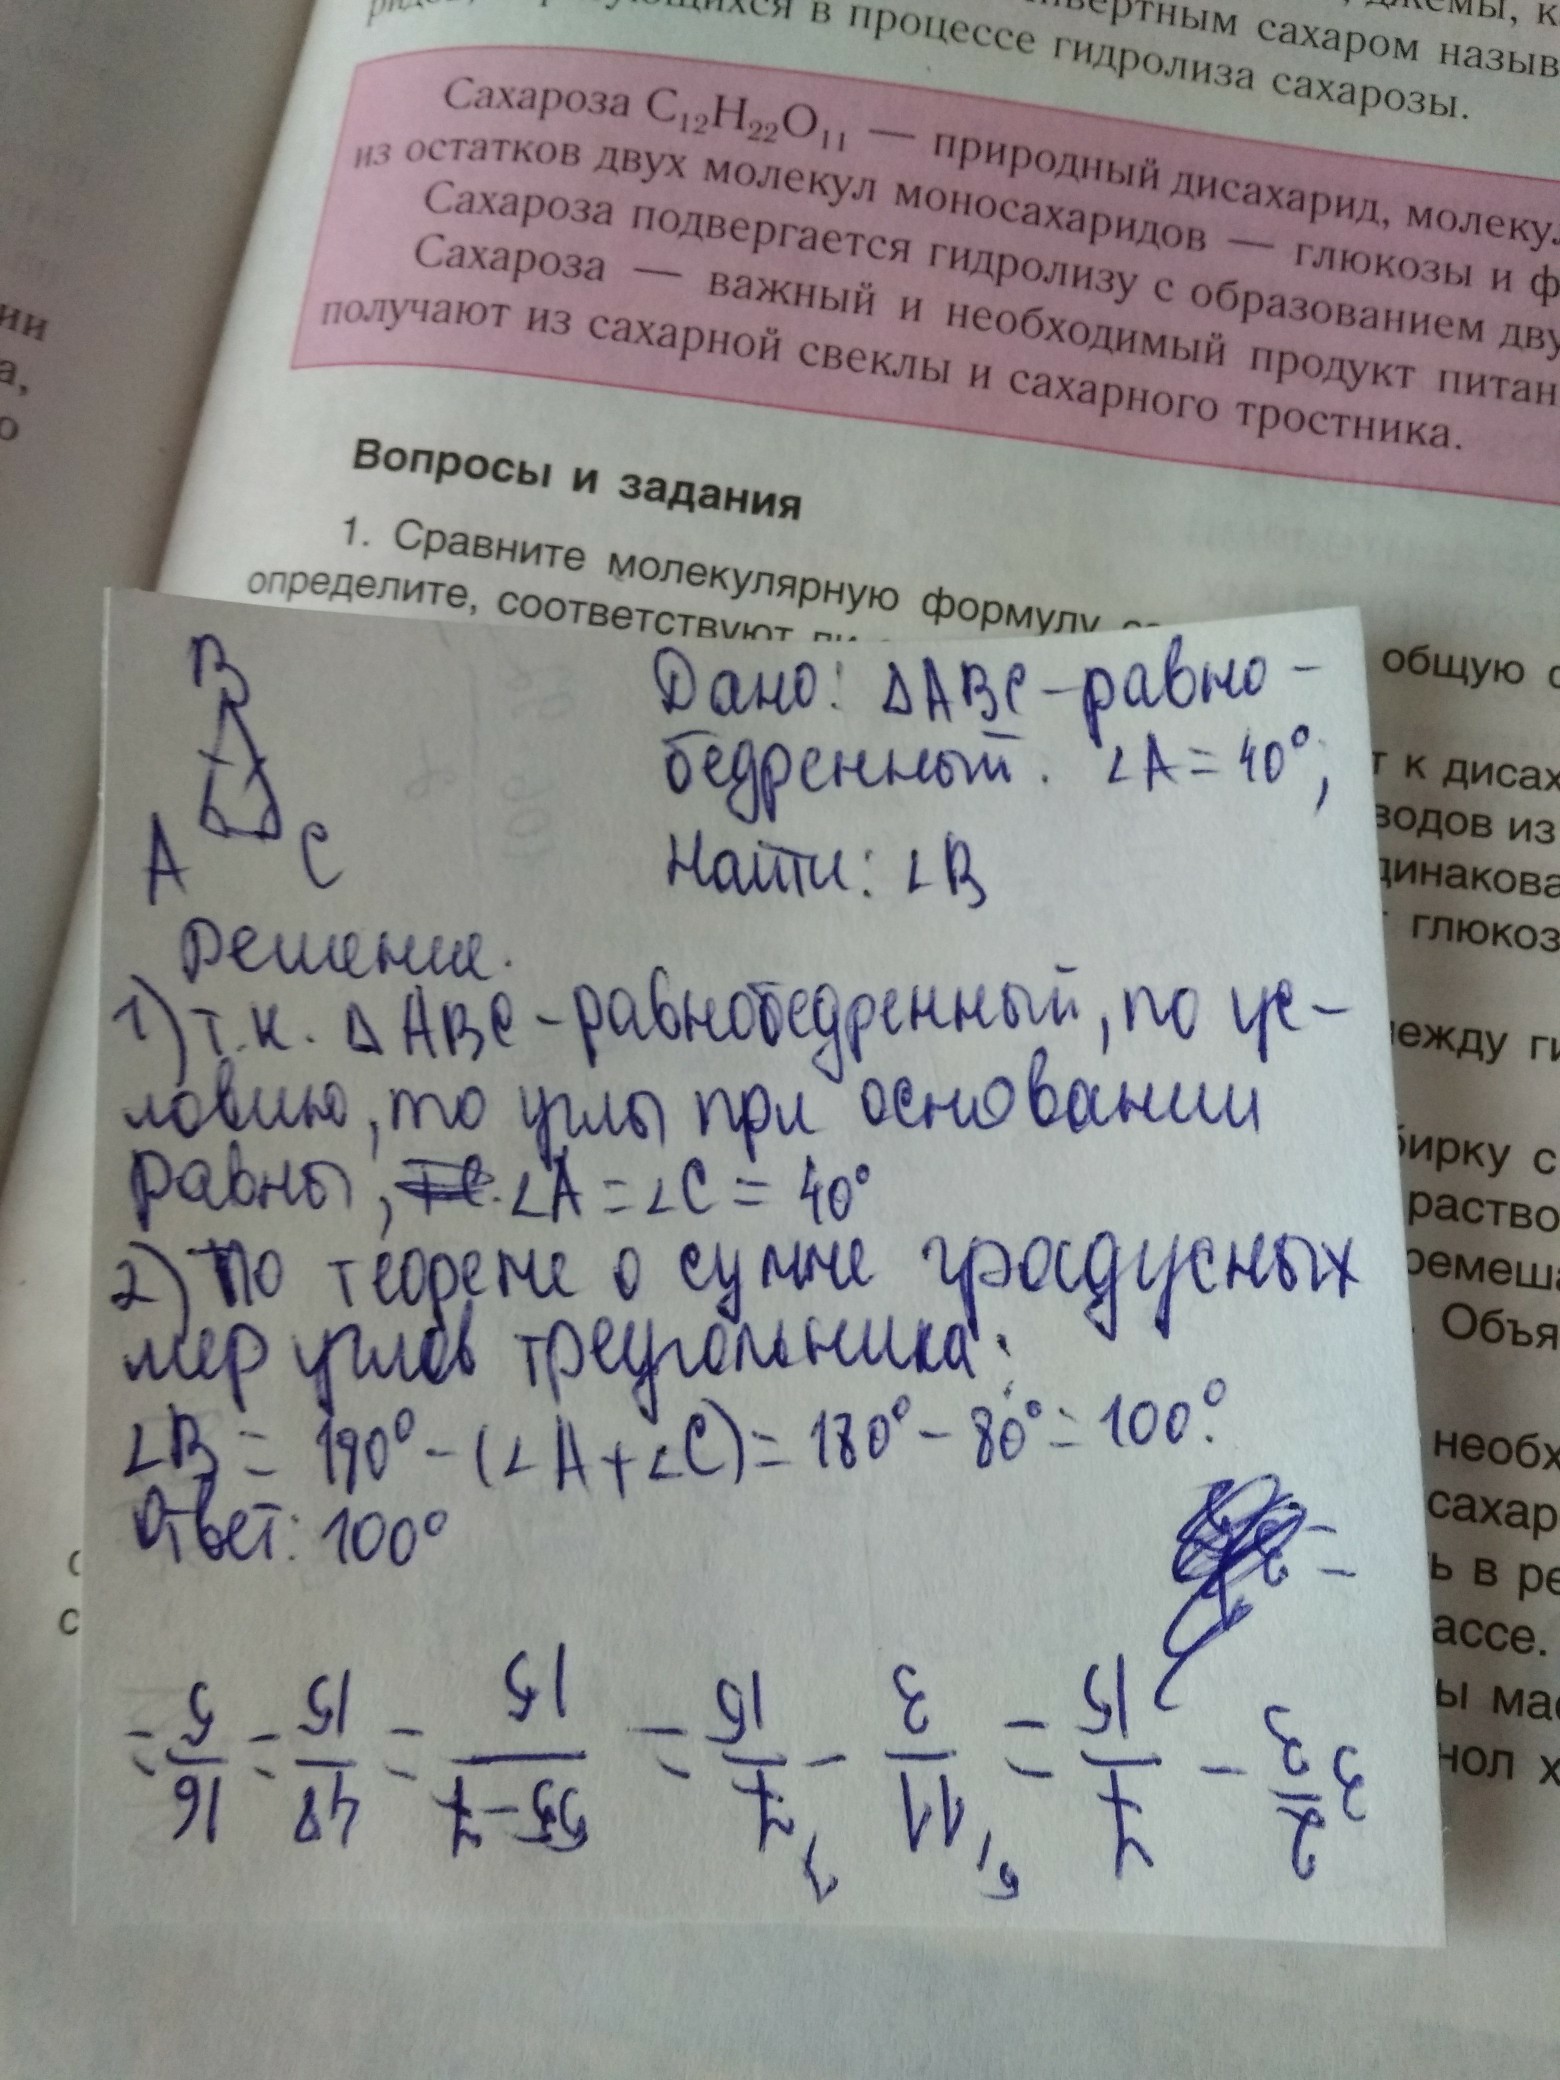 джемы, к
ющихся в процессе гидролиза сахарозы.
вертным сахаром назыв
Сахароза C₁₂H₂₂O₁₁ — природный дисахарид, молекул
из остатков двух молекул моносахаридов — глюкозы и ф
Сахароза подвергается гидролизу с образованием дву
Сахароза — важный и необходимый продукт питан
получают из сахарной свеклы и сахарного тростника.
Вопросы и задания
1. Сравните молекулярную формулу
общую
определите, соответствуют ли
ии
а,
о
т к дисах
водов из
динакова
глюкоз
ежду ги
бирку с
раство
ремеша
Объя
необх
сахар
ь в ре
ассе.
ы мас
нол х
B
A C
Дано: ΔABC - равно-
бедренный. ∠A = 40°;
Найти: ∠B
Решение.
1) т.к. ΔABC - равнобедренный, по ус-
ловию, то углы при основании
равны, ∠A = ∠C = 40°
2) По теореме о сумме градусных
мер углов треугольника:
∠B = 190° - (∠A + ∠C) = 180° - 80° = 100°.
Ответ: 100°
3 2/3 - 7/15 = 11/3 - 7/15 = 55-7/15 = 48/15 = 16/5 =